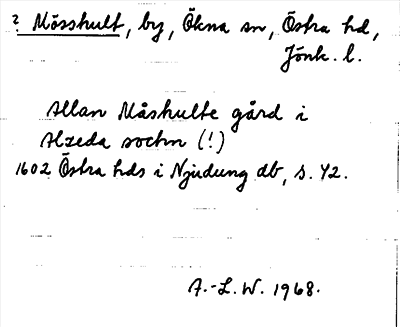 ? Mösshult, by, Ökna sn, Östra hd,
Jönk. l.
Allan Måshulte gård i
Alzeda sochn (!)
1602 Östra hds i Njudung db, s. 42.
A.-L. W. 1968.